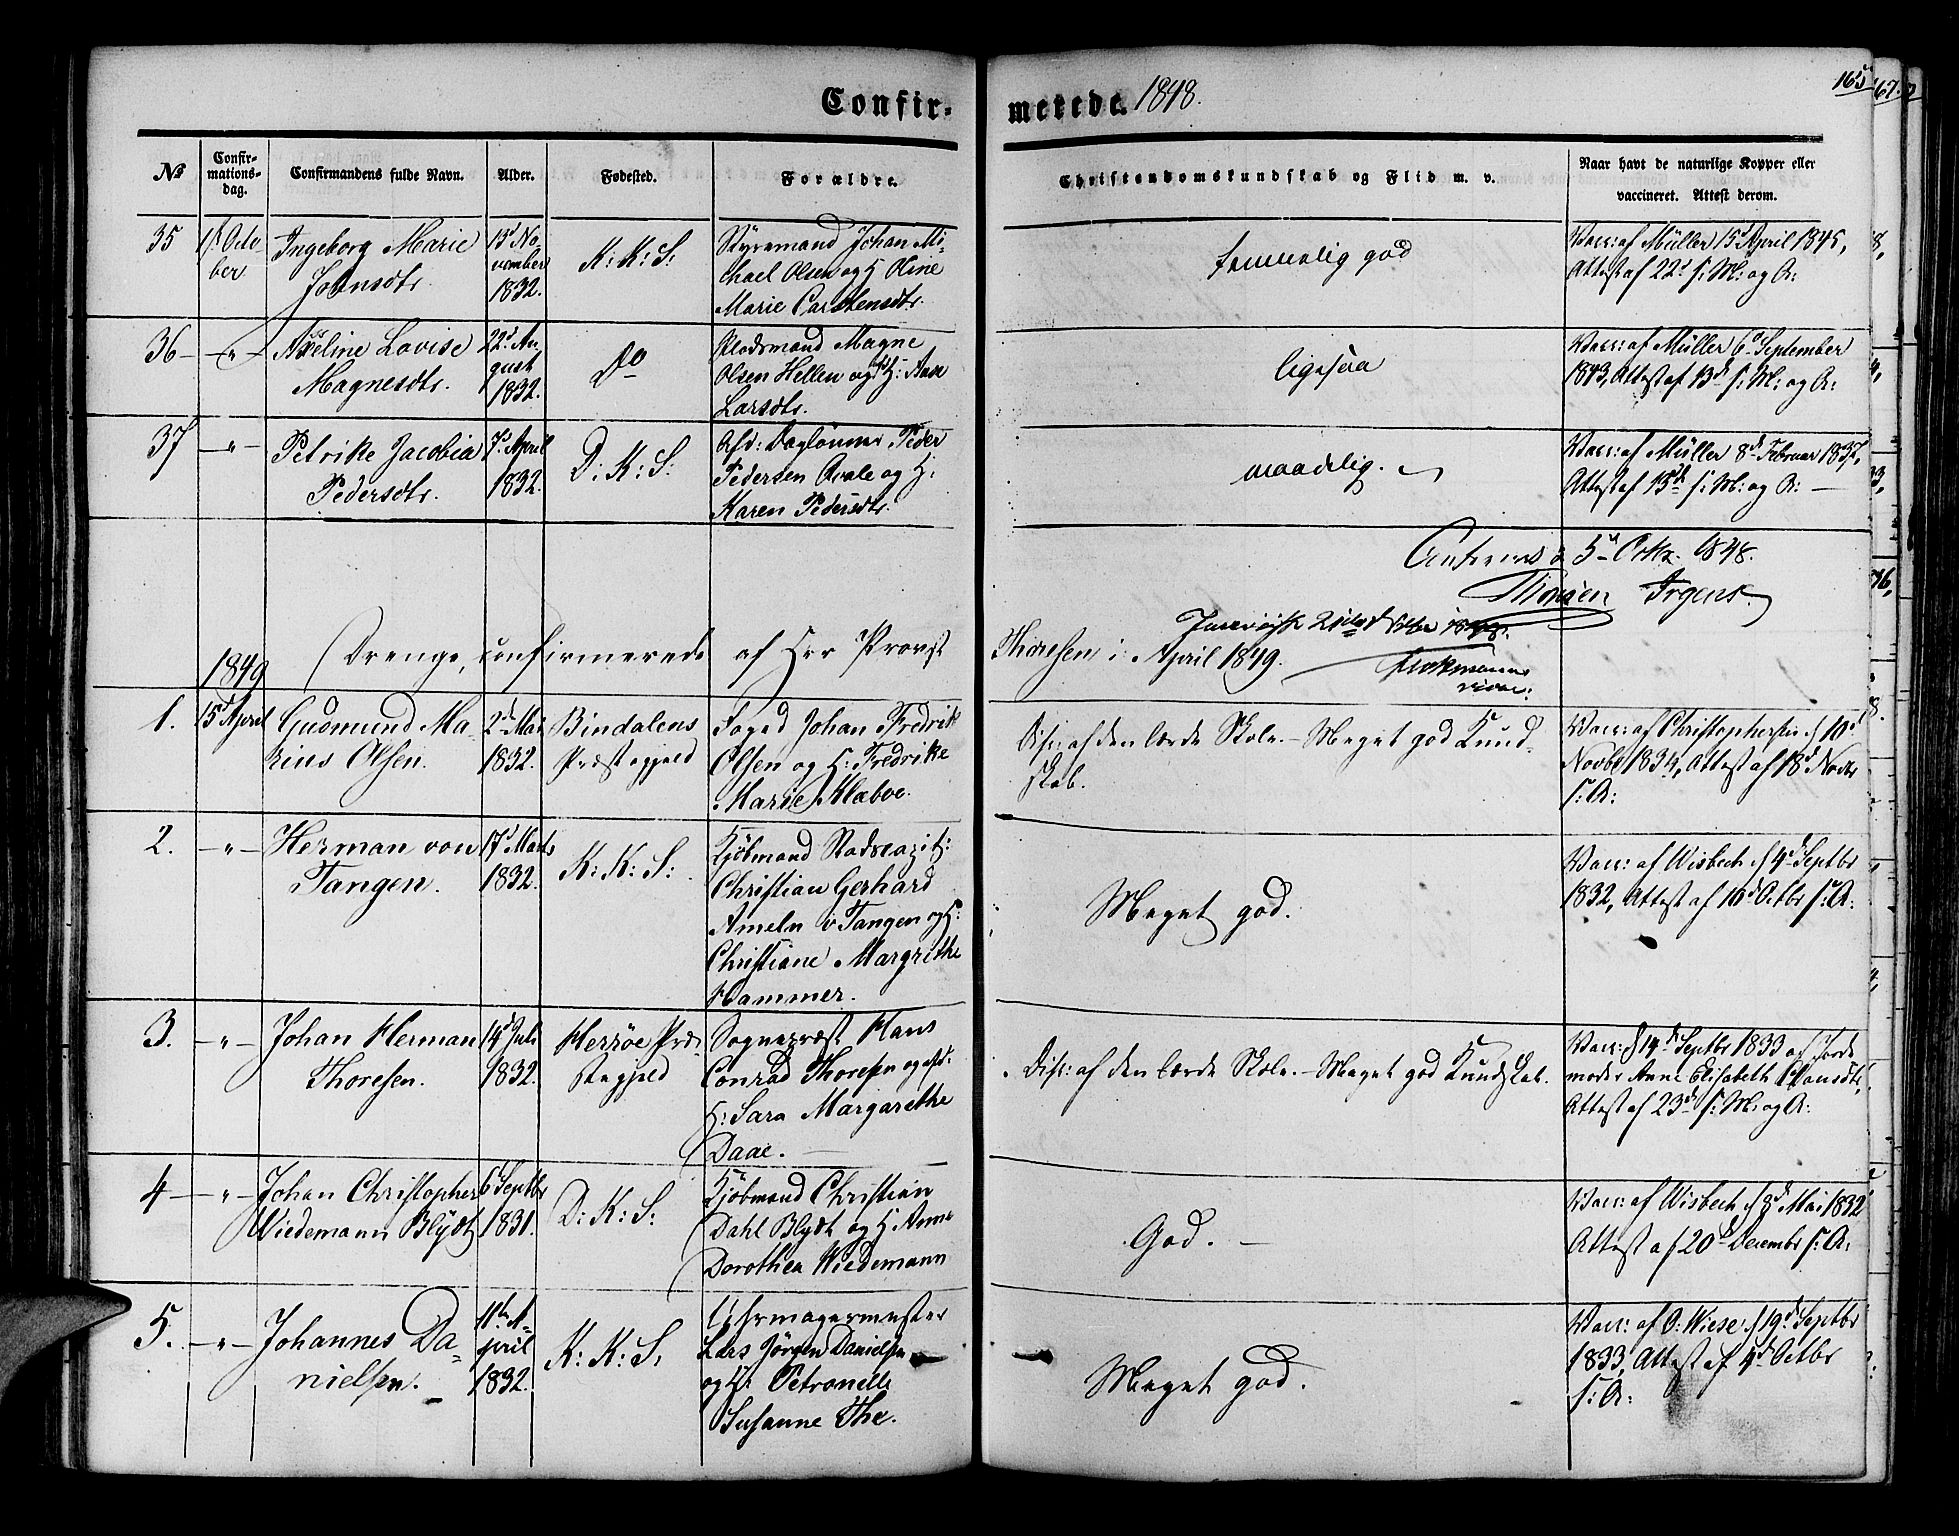 Confirmerede. 1848.
165
67.
№
Confirmationsdag.
Confirmandens fulde Navn.
Alder.
Fødested.
Forældre.
Christendomskundskab og Flid m. v.
Naar havt de naturlige Kopper eller
vaccineret. Attest derom.
35
1st Octo
ber
Ingeborg Marie
Johnsdtr.
13d No
vember
1832.
K: K: S:
Styrmand Johan Mi-
chael Olsen og H. Oline
Marie Carstensdtr.
temmelig god
Vacc: af Müller 15d April 1845,
Attest af 22d s: M: og A:
36
-"-
Axeline Lovise
Magnesdtr.
22d Au
gust
1832.
Do
Magne
Olsen Hellen og H: Aase
Larsdtr.
ligesaa
Vacc: af Müller 6d September
1843, Attest af 13d s: M: og A:
37
-"-
Petrike Jacobia
Pedersdtr.
7d April
1832.
D: K: S:
Afd: Daglønner Peder
Pedersen og H:
Karen Pedersdtr.
maadelig.
Vacc: af Müller 8d Februar 1837,
Attest af 15d s: M: og A:
5 1848.
Irgens.
1849
Drenge, confirmerede af Hrr Provst
Thoresen i April 1849.
1.
15d April
Gudmund Ma-
rius Olsen.
2d Mai
1832.
Bindalens
Præstegjeld
Foged Johan Fredrik
Olsen og H: Fredrikke
Marie Klæboe.
Disc: af den lærde Skole. - Meget god Kund-
skab.
Vacc: af Christophersen d 10d
Novbr 1834, Attest af 18d Novbr
s: A:
2.
-"-
Herman von
Tangen.
17d Marts
1832.
K: K: S:
Kjöbmand
Christian Gerhard
Ameln v Tangen og H:
Christiane Margrethe
Hammer.
Meget god.
Vacc: af Wisbech d 4d Septbr
1832, Attest af 10d Octbr s: A:
3.
-"-
Johan Herman
Thoresen.
14d Juli
1832.
Herröe Præ-
stegjeld
Sognepræst Hans
Conrad Thoresen og afd:
H: Sara Margarethe
Daae.
Disc: af den lærde Skole. - Meget god Kundskab.
Vacc: d 14d Septbr 1833 af Jorde
moder Anne Elisabeth Hansdtr,
Attest af 23d s: M: og A:
4
-"-
Johan Christopher
Wiedemann Blydt
6 Septbr
1831.
D: K: S:
Kjöbmand Christian
Dahl Blydt og H. Anne
Dorothea Wiedemann
God.
Vacc: af Wisbech d 8d Mai 1832
Attest af 20d Decembr s: A:
5.
-"-
Johannes Da-
nielsen.
11te A-
pril
1832.
K: K: S:
Uhrmagermester
Lars Jörgen Danielsen
og H: Petronelle
Susanne The.
Meget god.
Vacc: af O. Wiese d 19d Septbr
1833, Attest af 4d Octbr
s: A: